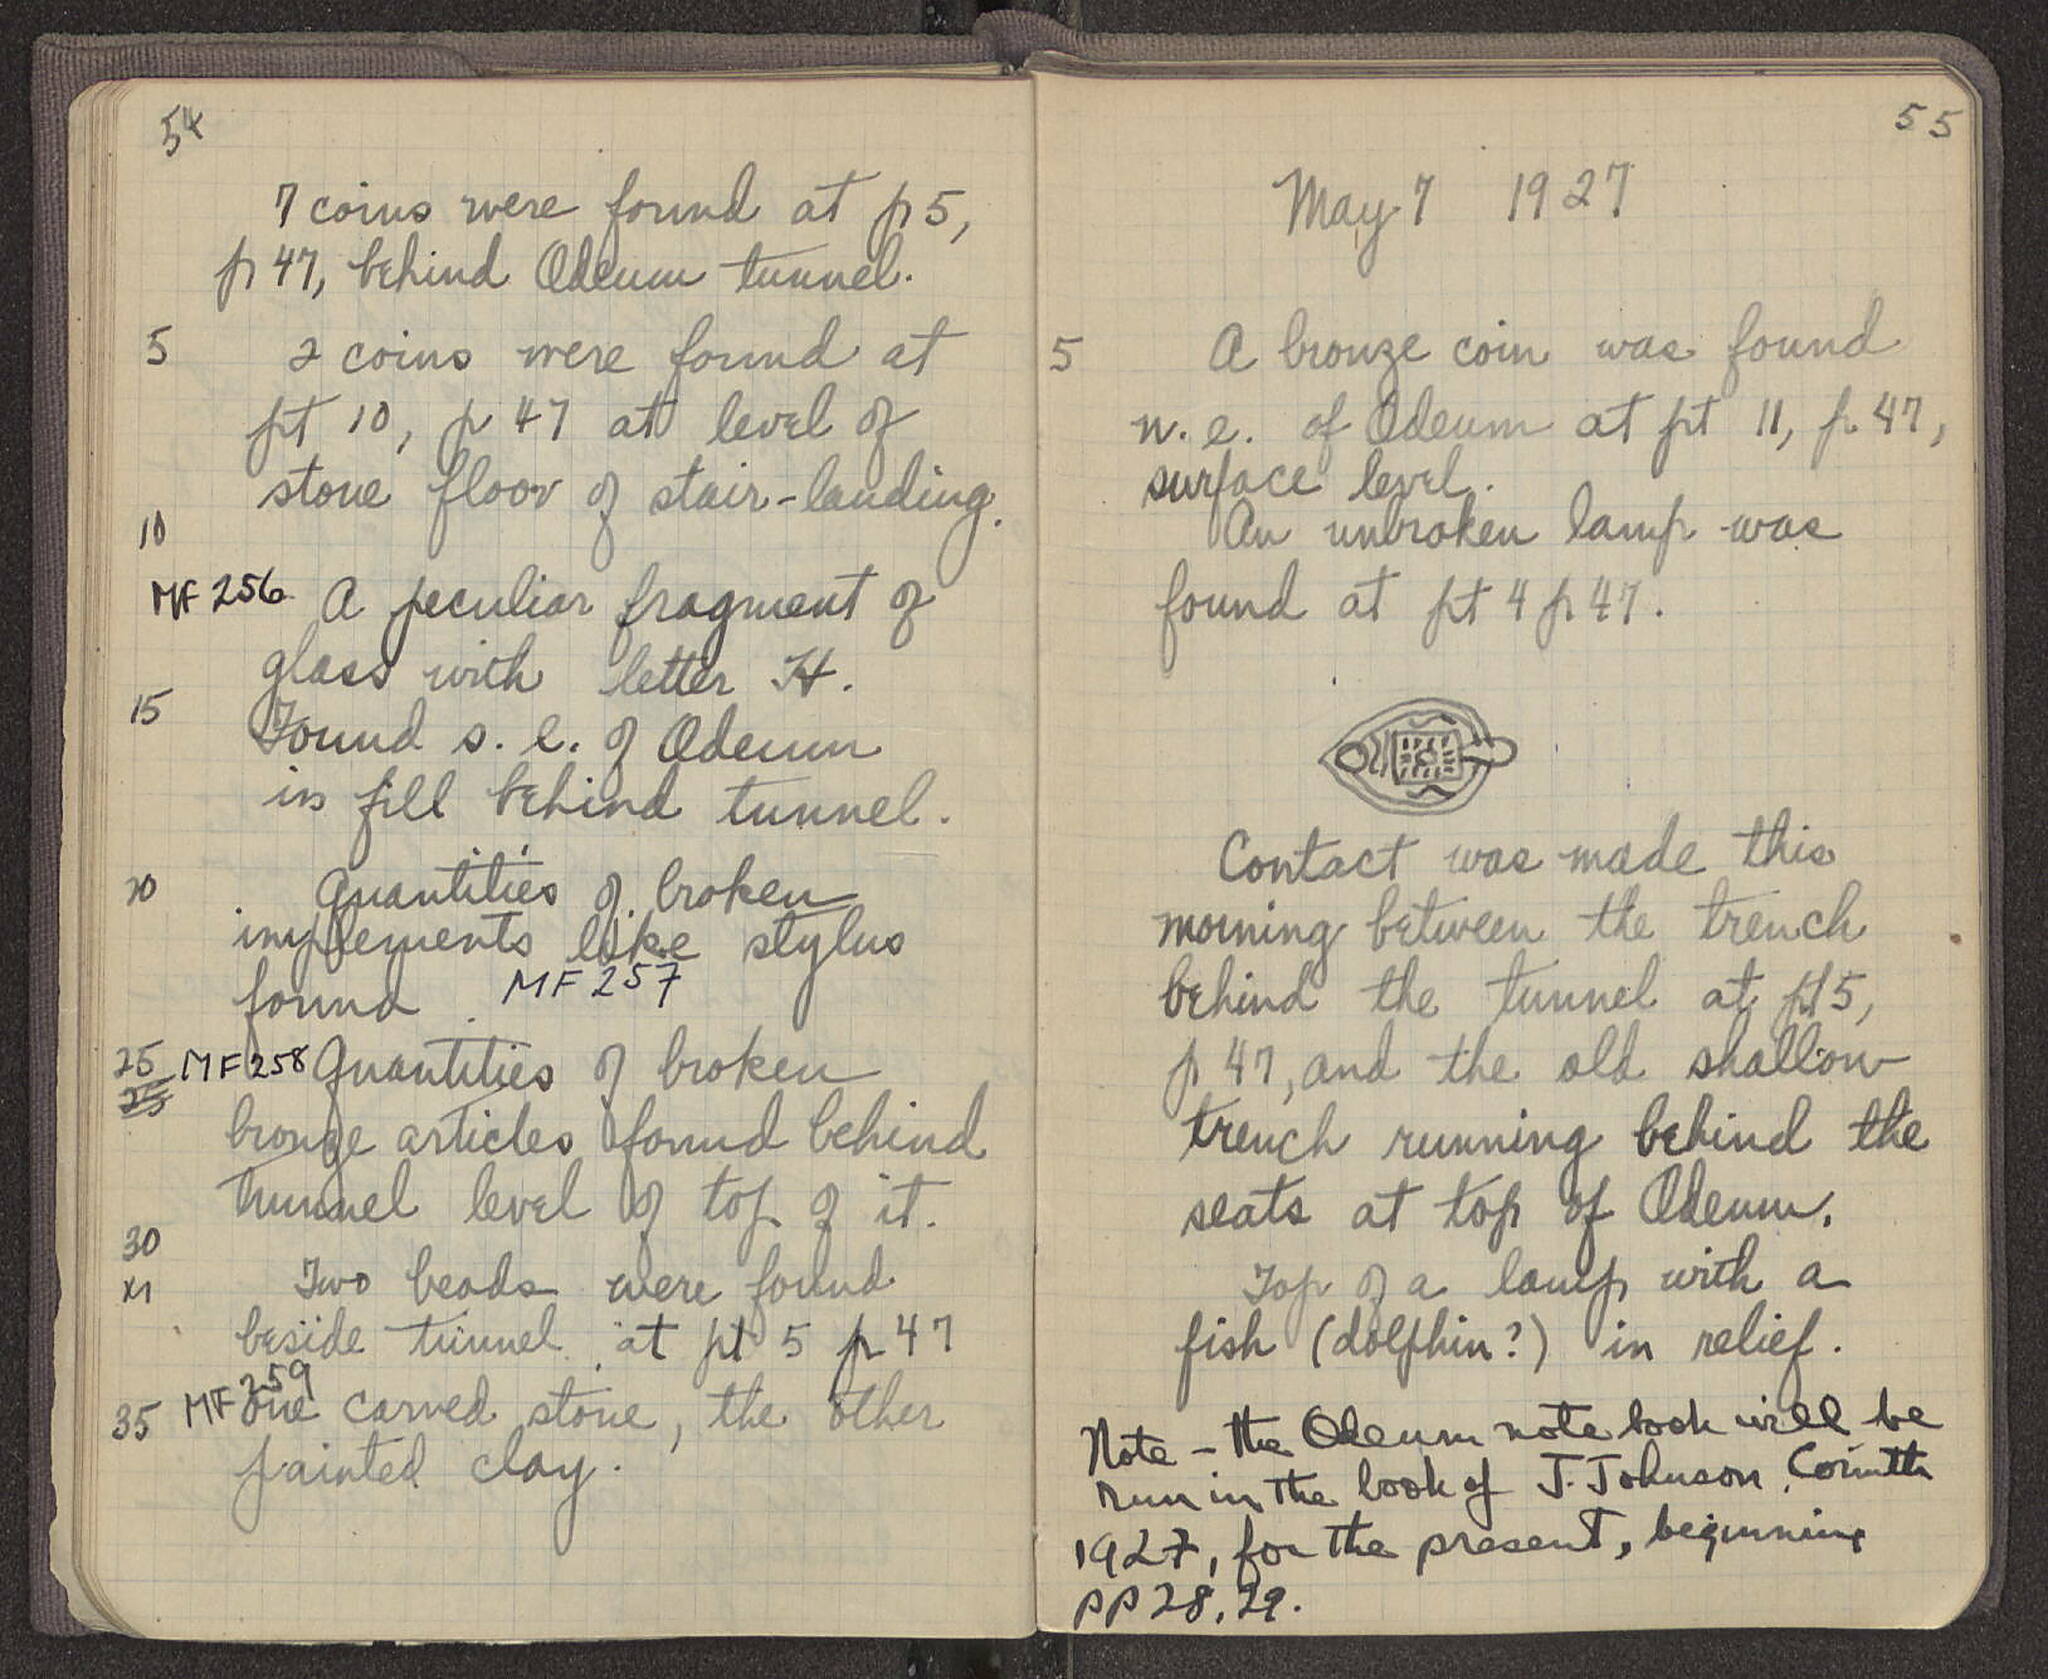 54
7 coins were found at p 5,
p 47, behind Odeum tunnel.
5 2 coins were found at
pt 10, p 47 at level of
stone floor of stair-landing.
10
MF 256 A peculiar fragment of
glass with letter H.
15
Found s. e. of Odeum
in fill behind tunnel.
20 Quantities of broken
implements like stylus
found. MF 257
25 MF 258 Quantities of broken
25
bronze articles found behind
tunnel level of top of it.
30
X1 Two beads were found
beside tunnel at pt 5 p 47
35 MF 259 one carved stone, the other
painted clay.
55
May 7 1927
5 A bronze coin was found
n. e. of Odeum at pt 11, p. 47,
surface level.
An unbroken lamp was
found at pt 4 p 47.
Contact was made this
morning between the trench
behind the tunnel at pt 5,
p 47, and the old shallow
trench running behind the
seats at top of Odeum.
Top of a lamp with a
fish (dolphin?) in relief.
Note - the Odeum note book will be
run in the book of J. Johnson, Corinth
1927, for the present, beginning
pp 28, 29.